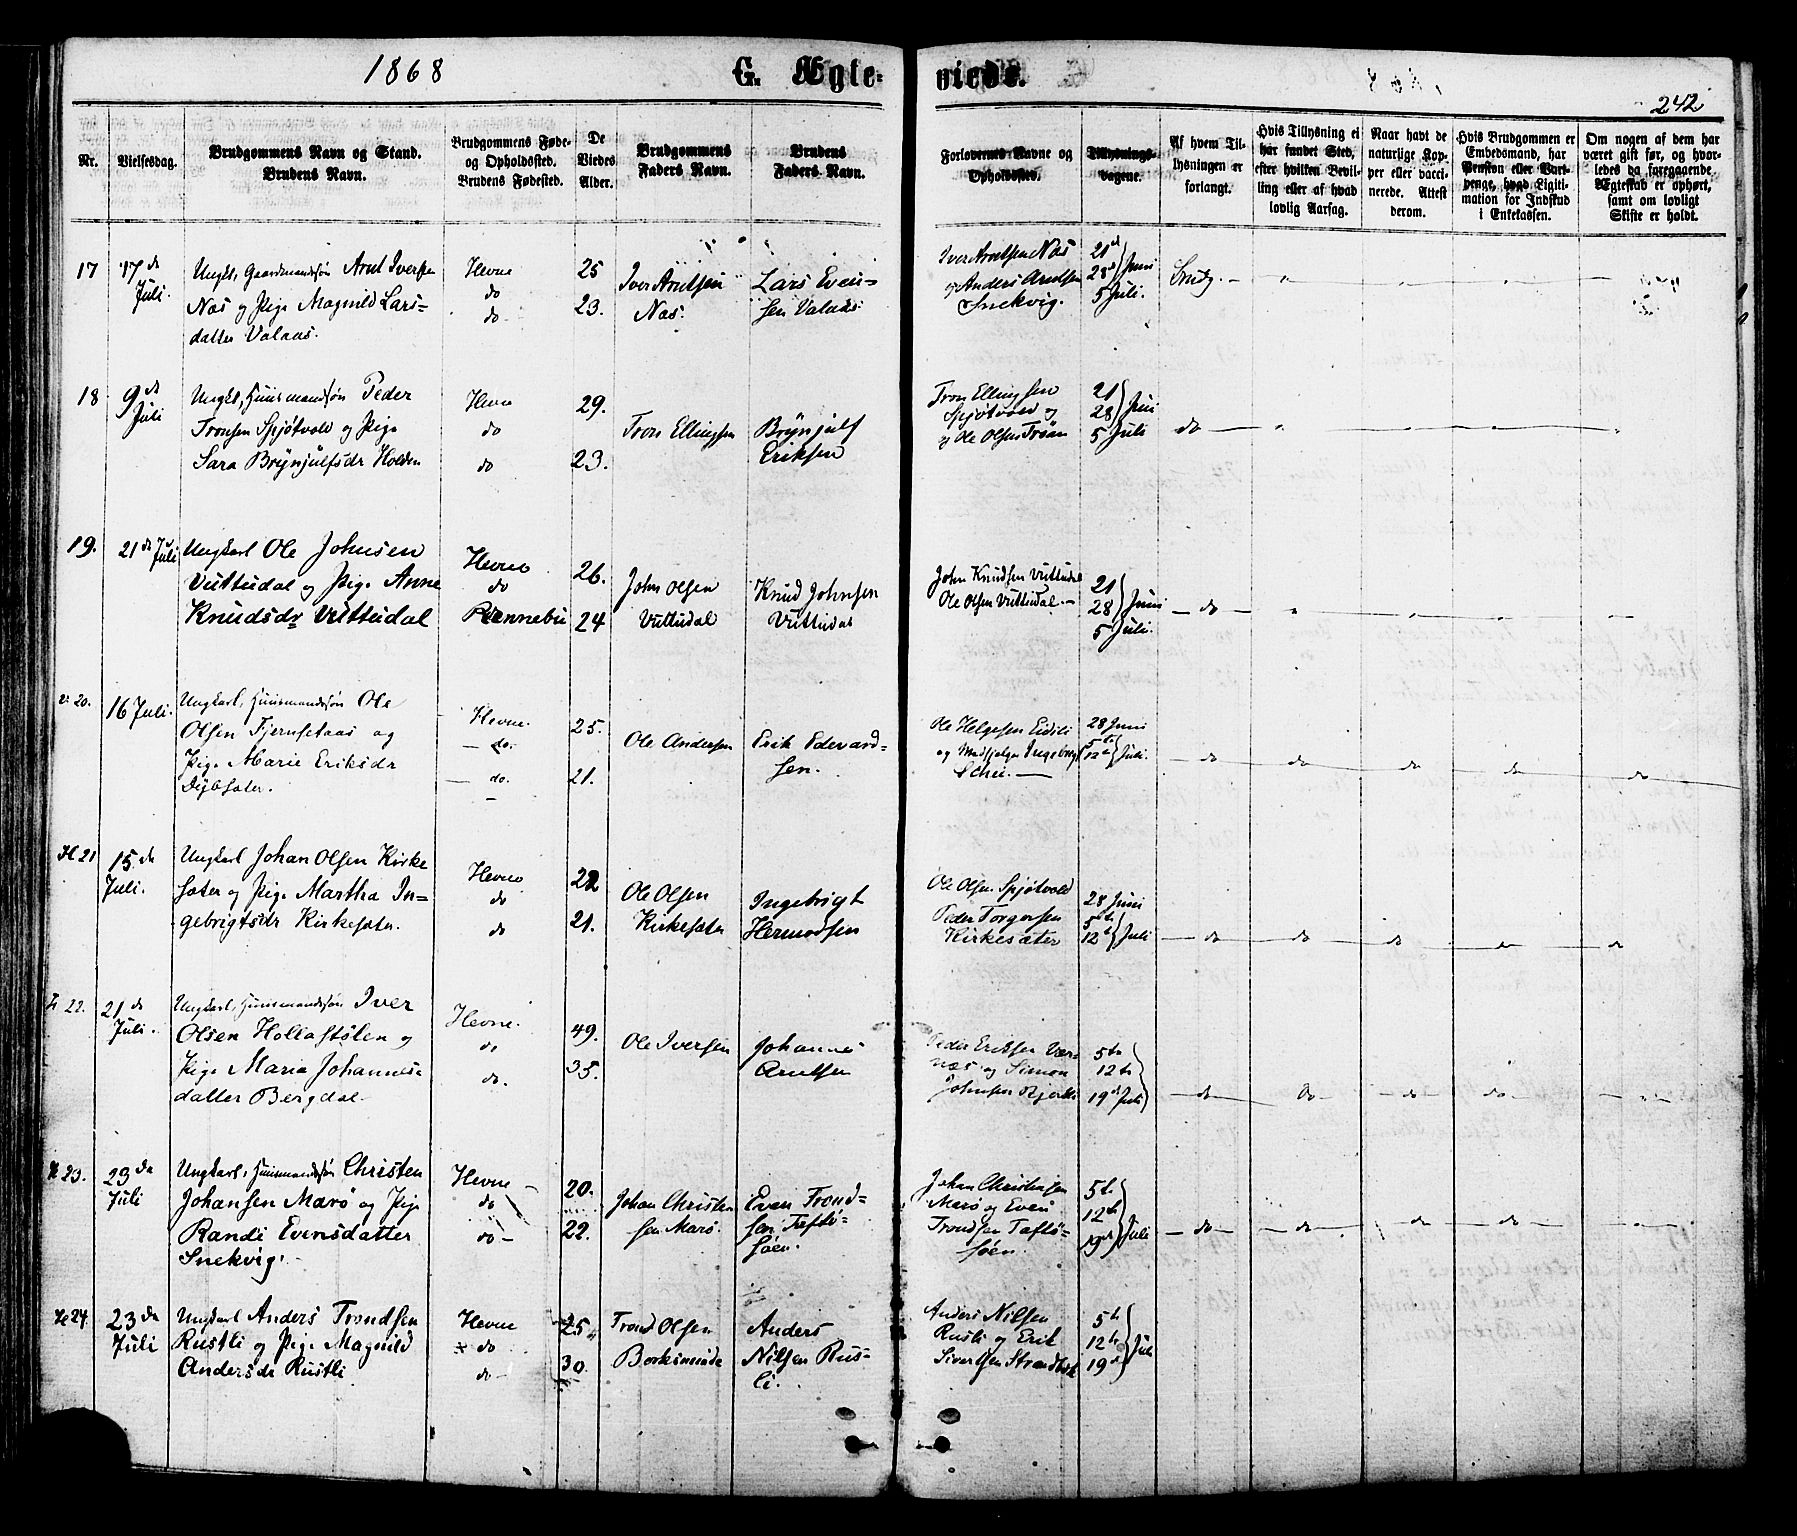 1868
G. Ægte-
viede.
242
Nr.
Vielsesdag.
Brudgommens Navn og Stand.
Brudens Navn.
Brudgommens Føde-
og Opholdssted.
Brudens Fødested.
De
Viedes
Alder.
Brudgommens
Faders Navn.
Brudens
Faders Navn.
Forlovernes Navne og
Opholdssted.
Tillysnings-
dagene.
Af hvem Til-
lysningen er
forlangt.
Hvis Tillysning ei
har fundet Sted,
efter hvilken Bevil-
ling eller af hvad
lovlig Aarsag.
Naar havt de
naturlige Kop-
per eller vacci-
nerede. Attest
derom.
Hvis Brudgommen er
Embedsmand, har
Pension eller Vart-
penge, hvad Ligiti-
mation for Indskud
i Enkekassen.
Om nogen af dem har
været gift før, og hvor-
ledes da foregaaende
Ægteskab er ophørt,
samt om lovligt
Skifte er holdt.
17
17 de
Juli.
Ungk. Gaardmandssøn Arnt Iversen
Næs og Pige Magnild Lars-
datter Valaas.
Hevne
do
do
25
23.
Iver Arntsen
Næs.
Lars Even-
sen Valaas
Iver Arntsen Næs
og Anders Arntsen
Snekvig.
21 d
28 d Juni
5 Juli.
Brudg.
18
9 de
Juli
Ungk., Huusmandssøn Peder
Tronsen Spjøtvold og Pige
Sara Brynjulfsdr Holden
Hevne
do
do
29.
23.
Tron Ellingsen
Brynjulf
Eriksen
Tron Ellingsen
Spjøtvold og
og Ole Olsen Trøan
21
28 Juni
5 Juli
do
19.
21 de Juli
Ungkarl Ole Johnsen
Vuttudal og Pige Anne
Knudsdr Vuttudal
Hevne
do
Rennebu
26.
24
John Olsen
Vuttudal
Knud Johnsen
Vuttudal
John Knudsen Vuttudal
Ole Olsen Vuttudal
21
28 Juni
5 Juli.
do
20.
16 Juli.
Ungkarl, Huusmandssøn Ole
Olsen Fjernsetaas og
Pige Marie Eriksdr
Dybsæter.
Hevne.
do.
do.
25.
21.
Ole Andersen
Erik Edevard-
sen.
Ole Helgesen Eidsli
og Ingebrigt
Schei.
28 Juni
5te
12te Juli.
do
do
do
do
do
H 21
15 de
Juli.
Ungkarl Johan Olsen Kirke
sæter og Pige Martha In-
gebrigtsdr Kirkesæter.
Hevne
do
do
22
21.
Ole Olsen
Kirkesæter
Ingebrigt
Hermodsen
Ole Olsen Spjøtvold
Peder Torgersen
Kirkesæter
28 Juni
5te
12te Juli
do
do
do
do
do
22.
21 de
Juli.
Ungkarl, Huusmandssøn Iver
Olsen Hollastølen og
Pige Maria Johannes-
datter Bergdal
Hevne.
do
do.
49.
35.
Ole Iversen
Johannes
Arntsen
Peder Eriksen Vær-
næs og Simon
Johnsen
5te
12te
19de Juli
do
Do
do
do
23.
23 de
Juli
Ungkarl, Huusmandssøn Christen
Johansen Marø og Pige
Randi Evensdatter
Snekvig.
Hevne
do
do
20.
22.
Johan Christen
sen Marø.
Even Trond-
sen Taftø-
søen.
Johan Christensen
Marø og Even
Trondsen Taftø-
søen.
5te
12te
19de Juli
do
do
do
do
24.
23 de
Juli
Ungkarl Anders Trondsen
Rustli og Pige Magnild
Andersdr Rustli
Hevne
do
do
25
30.
Trond Olsen
Borksminde
Anders
Nilsen Rus-
li.
Anders Nilsen
Rusli og Erik
Sivertsen
5te
12te Juli
19de